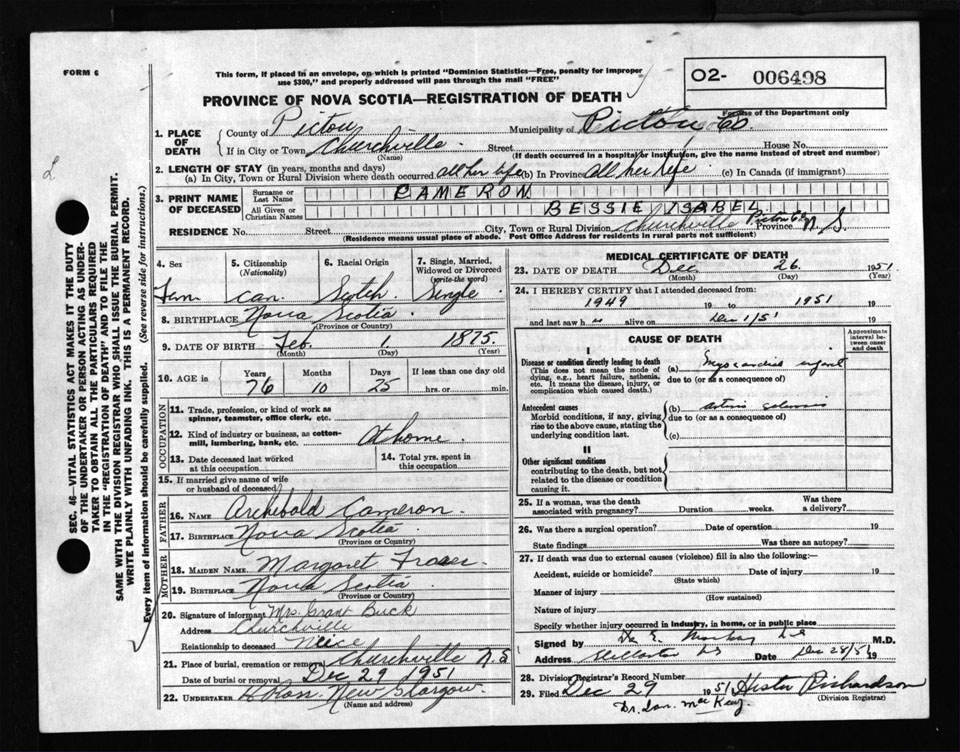 FORM 6
This form, if placed in an envelope, on which is printed "Dominion Statistics—Free, penalty for improper
use $300," and properly addressed will pass through the mail "FREE"
O2- 006498
PROVINCE OF NOVA SCOTIA—REGISTRATION OF DEATH
For use of the Department only
1. PLACE OF DEATH County of Pictou Municipality of Pictou Co.
If in City or Town Churchville Street House No.
(Name) (If death occurred in a hospital or institution, give the name instead of street and number)
2. LENGTH OF STAY (in years, months and days)
(a) In City, Town or Rural Division where death occurred all her life (b) In Province all her life (c) In Canada (if immigrant)
3. PRINT NAME OF DECEASED Surname or Last Name CAMERON
All Given or Christian Names BESSIE ISABEL
RESIDENCE No. Street City, Town or Rural Division Churchville Pictou Co Province N.S.
(Residence means usual place of abode. Post Office Address for residents in rural parts not sufficient)
4. Sex Fem
5. Citizenship (Nationality) Can.
6. Racial Origin Scotch
7. Single, Married, Widowed or Divorced (write the word) Single
8. BIRTHPLACE Nova Scotia
(Province or Country)
9. DATE OF BIRTH Feb. 1 1875
(Month) (Day) (Year)
10. AGE in Years 76 Months 10 Days 25 If less than one day old hrs. or min.
OCCUPATION
11. Trade, profession, or kind of work as
spinner, teamster, office clerk, etc.
12. Kind of industry or business, as cotton-
mill, lumbering, bank, etc. At home
13. Date deceased last worked
at this occupation
14. Total yrs. spent in
this occupation
15. If married give name of wife
or husband of deceased
FATHER
16. NAME Archibald Cameron
17. BIRTHPLACE Nova Scotia
(Province or Country)
MOTHER
18. MAIDEN NAME Margaret Fraser
19. BIRTHPLACE Nova Scotia
(Province or Country)
20. Signature of informant Mrs. Grant Buck
Address Churchville
Relationship to deceased Neice
21. Place of burial, cremation or removal Churchville N.S
Date of burial or removal Dec 29 1951
22. UNDERTAKER Ross New Glasgow
(Name and address)
MEDICAL CERTIFICATE OF DEATH
23. DATE OF DEATH Dec. 26 1951
(Month) (Day)
24. I HEREBY CERTIFY that I attended deceased from:
1949 19 to 1951 19
and last saw h alive on Dec 1/51 19
CAUSE OF DEATH
Approximate interval between onset and death
I
Disease or condition directly leading to death
(This does not mean the mode of
dying, e.g., heart failure, asthenia,
etc. It means the disease, injury, or
complication which caused death.)
(a) Myocardial infarct
due to (or as a consequence of)
Antecedent causes
Morbid conditions, if any, giving
rise to the above cause, stating the
underlying condition last.
(b)
due to (or as a consequence of)
(c)
II
Other significant conditions
contributing to the death, but not
related to the disease or condition
causing it.
25. If a woman, was the death
associated with pregnancy? Duration weeks. Was there a delivery?
26. Was there a surgical operation? Date of operation 19
State findings Was there an autopsy?
27. If death was due to external causes (violence) fill in also the following:—
Accident, suicide or homicide? Date of injury 19
(State which)
Manner of injury
(How sustained)
Nature of injury
Specify whether injury occurred in industry, in home, or in public place
Signed by M.D.
Address Stellarton NS Date Dec 28/51 19
28. Division Registrar's Record Number
29. Filed Dec 29 1951 Hester Richardson
(Division Registrar)
Dr. Ian. MacKay
SEC. 46—VITAL STATISTICS ACT MAKES IT THE DUTY
OF THE UNDERTAKER OR PERSON ACTING AS UNDER-
TAKER TO OBTAIN ALL THE PARTICULARS REQUIRED
IN THE "REGISTRATION OF DEATH" AND TO FILE THE
SAME WITH THE DIVISION REGISTRAR WHO SHALL ISSUE THE BURIAL PERMIT.
WRITE PLAINLY WITH UNFADING INK. THIS IS A PERMANENT RECORD.
Every item of information should be carefully supplied. (See reverse side for instructions.)